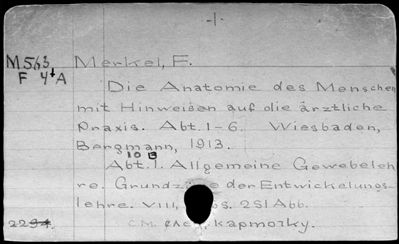 -1-
M563 Merkel, F.
F 4↓A
Die Anatomie des Menschen
mit Hinweisen auf die ärztliche
Praxis. Abt. 1-6. Wiesbaden,
Bergmann, 1913.
10 B
Abt. 1. Allgemeine Gewebeleh
re. der Entwickelungs-
lehre. VIII, S. 251 Abb.
2294. См. след. картотку.